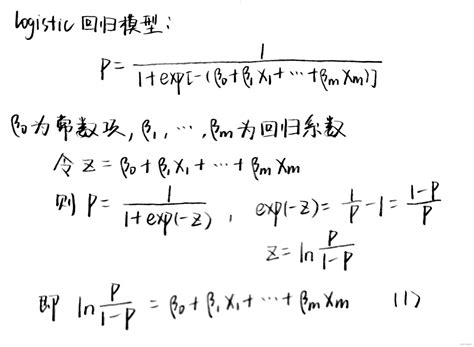 logistic 回归模型：
P = 1 / (1+exp[-(β₀+β₁X₁+⋯+βmXm)])
β₀为常数项，β₁，⋯，βm为回归系数
令 Z = β₀+β₁X₁+⋯+βmXm
则 P = 1 / (1+exp(-Z))， exp(-Z) = 1/P - 1 = (1-P)/P
Z = ln P/(1-P)
即 ln P/(1-P) = β₀+β₁X₁+⋯+βmXm (1)